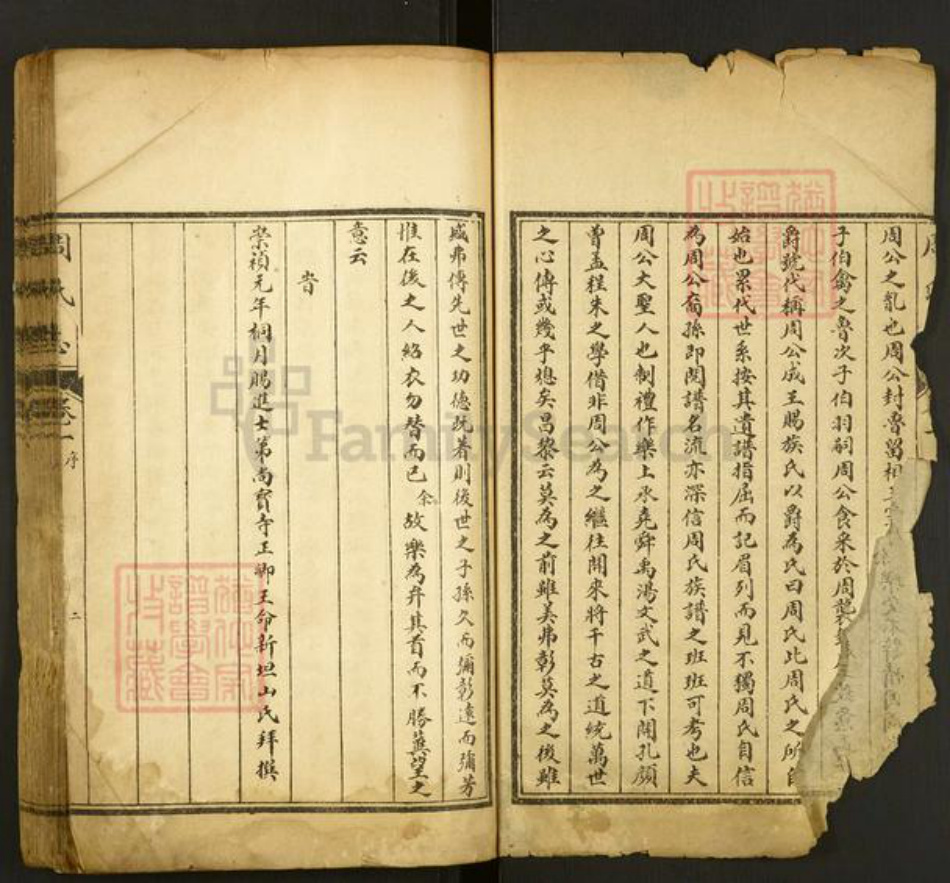 周公之亂也周公封魯留相
子伯禽之魯次子伯羽嗣周公食采於周襲
爵號代稱周公成王賜族氏以爵為氏曰周氏此周氏之所自
始也累代世系按其遺譜指屈而記眉列而見不獨周氏自信
為周公裔孫即閱譜名流亦深信周氏族譜之班班可考也夫
周公大聖人也制禮作樂上承堯舜禹湯文武之道下開孔顏
曾孟程朱之學借非周公為之繼往開來將千古之道統萬世
之心傳或幾乎熄矣昌黎云莫為之前雖美弗彰莫為之後雖
盛弗傳先世之功德既著則後世之子孫久而彌彰遠而彌芳
惟在後之人紹衣勿替而已余故樂為弁其首而不勝冀望之
意云
旹
崇禎元年桐月賜進士第尚寶寺正卿王命新坦山氏拜撰
周氏 卷一 序
二
FamilySearch